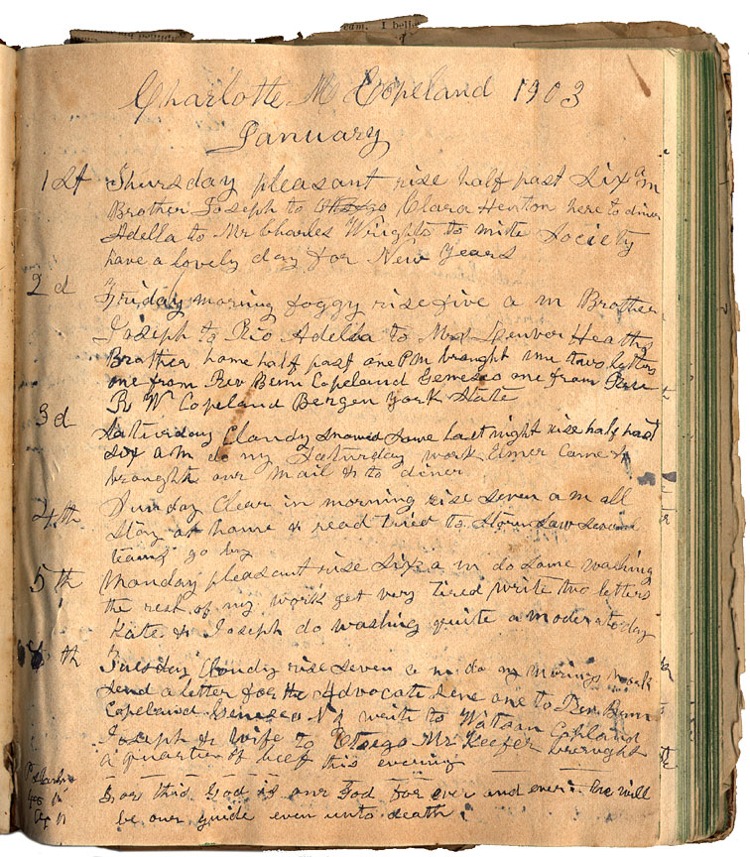 Charlotte M Copeland 1903
January
1st Thursday pleasant rise half past six a m
Brother Joseph to Otsego Clara Henton here to diner
Adella to Mr Charles Wrights to mite Society
have a lovely day for New Years
2d Friday morning foggy rise five a m Brother
Joseph to Rio Adella to Mrs Spencer Heaths
Brother home half past one PM brought me two letters
one from Rev Benn Copeland Geneseo one from
R W Copeland Bergen York State
3d Saturday Cloudy snowed some last night rise half past
six a m do my Saturday work Elmer Came &
brought our mail & to diner
4th Sunday Clear in morning rise seven a m all
stay at home & read tried to storm saw
teams go by
5th Monday pleasant rise six a m do some washing
the rest of my work get very tired write two letters
Kate & Joseph do washing quite a moderate day
6th Tuesday Cloudy rise seven a m do my mornings work
send a letter for the Advocate one to Rev Benn
Copeland Geneseo N Y write to Copeland
Joseph & wife to Otsego Mr Keefer brought
a quarter of beef this evening
For this God is our God for ever and ever: he will
be our guide even unto death.